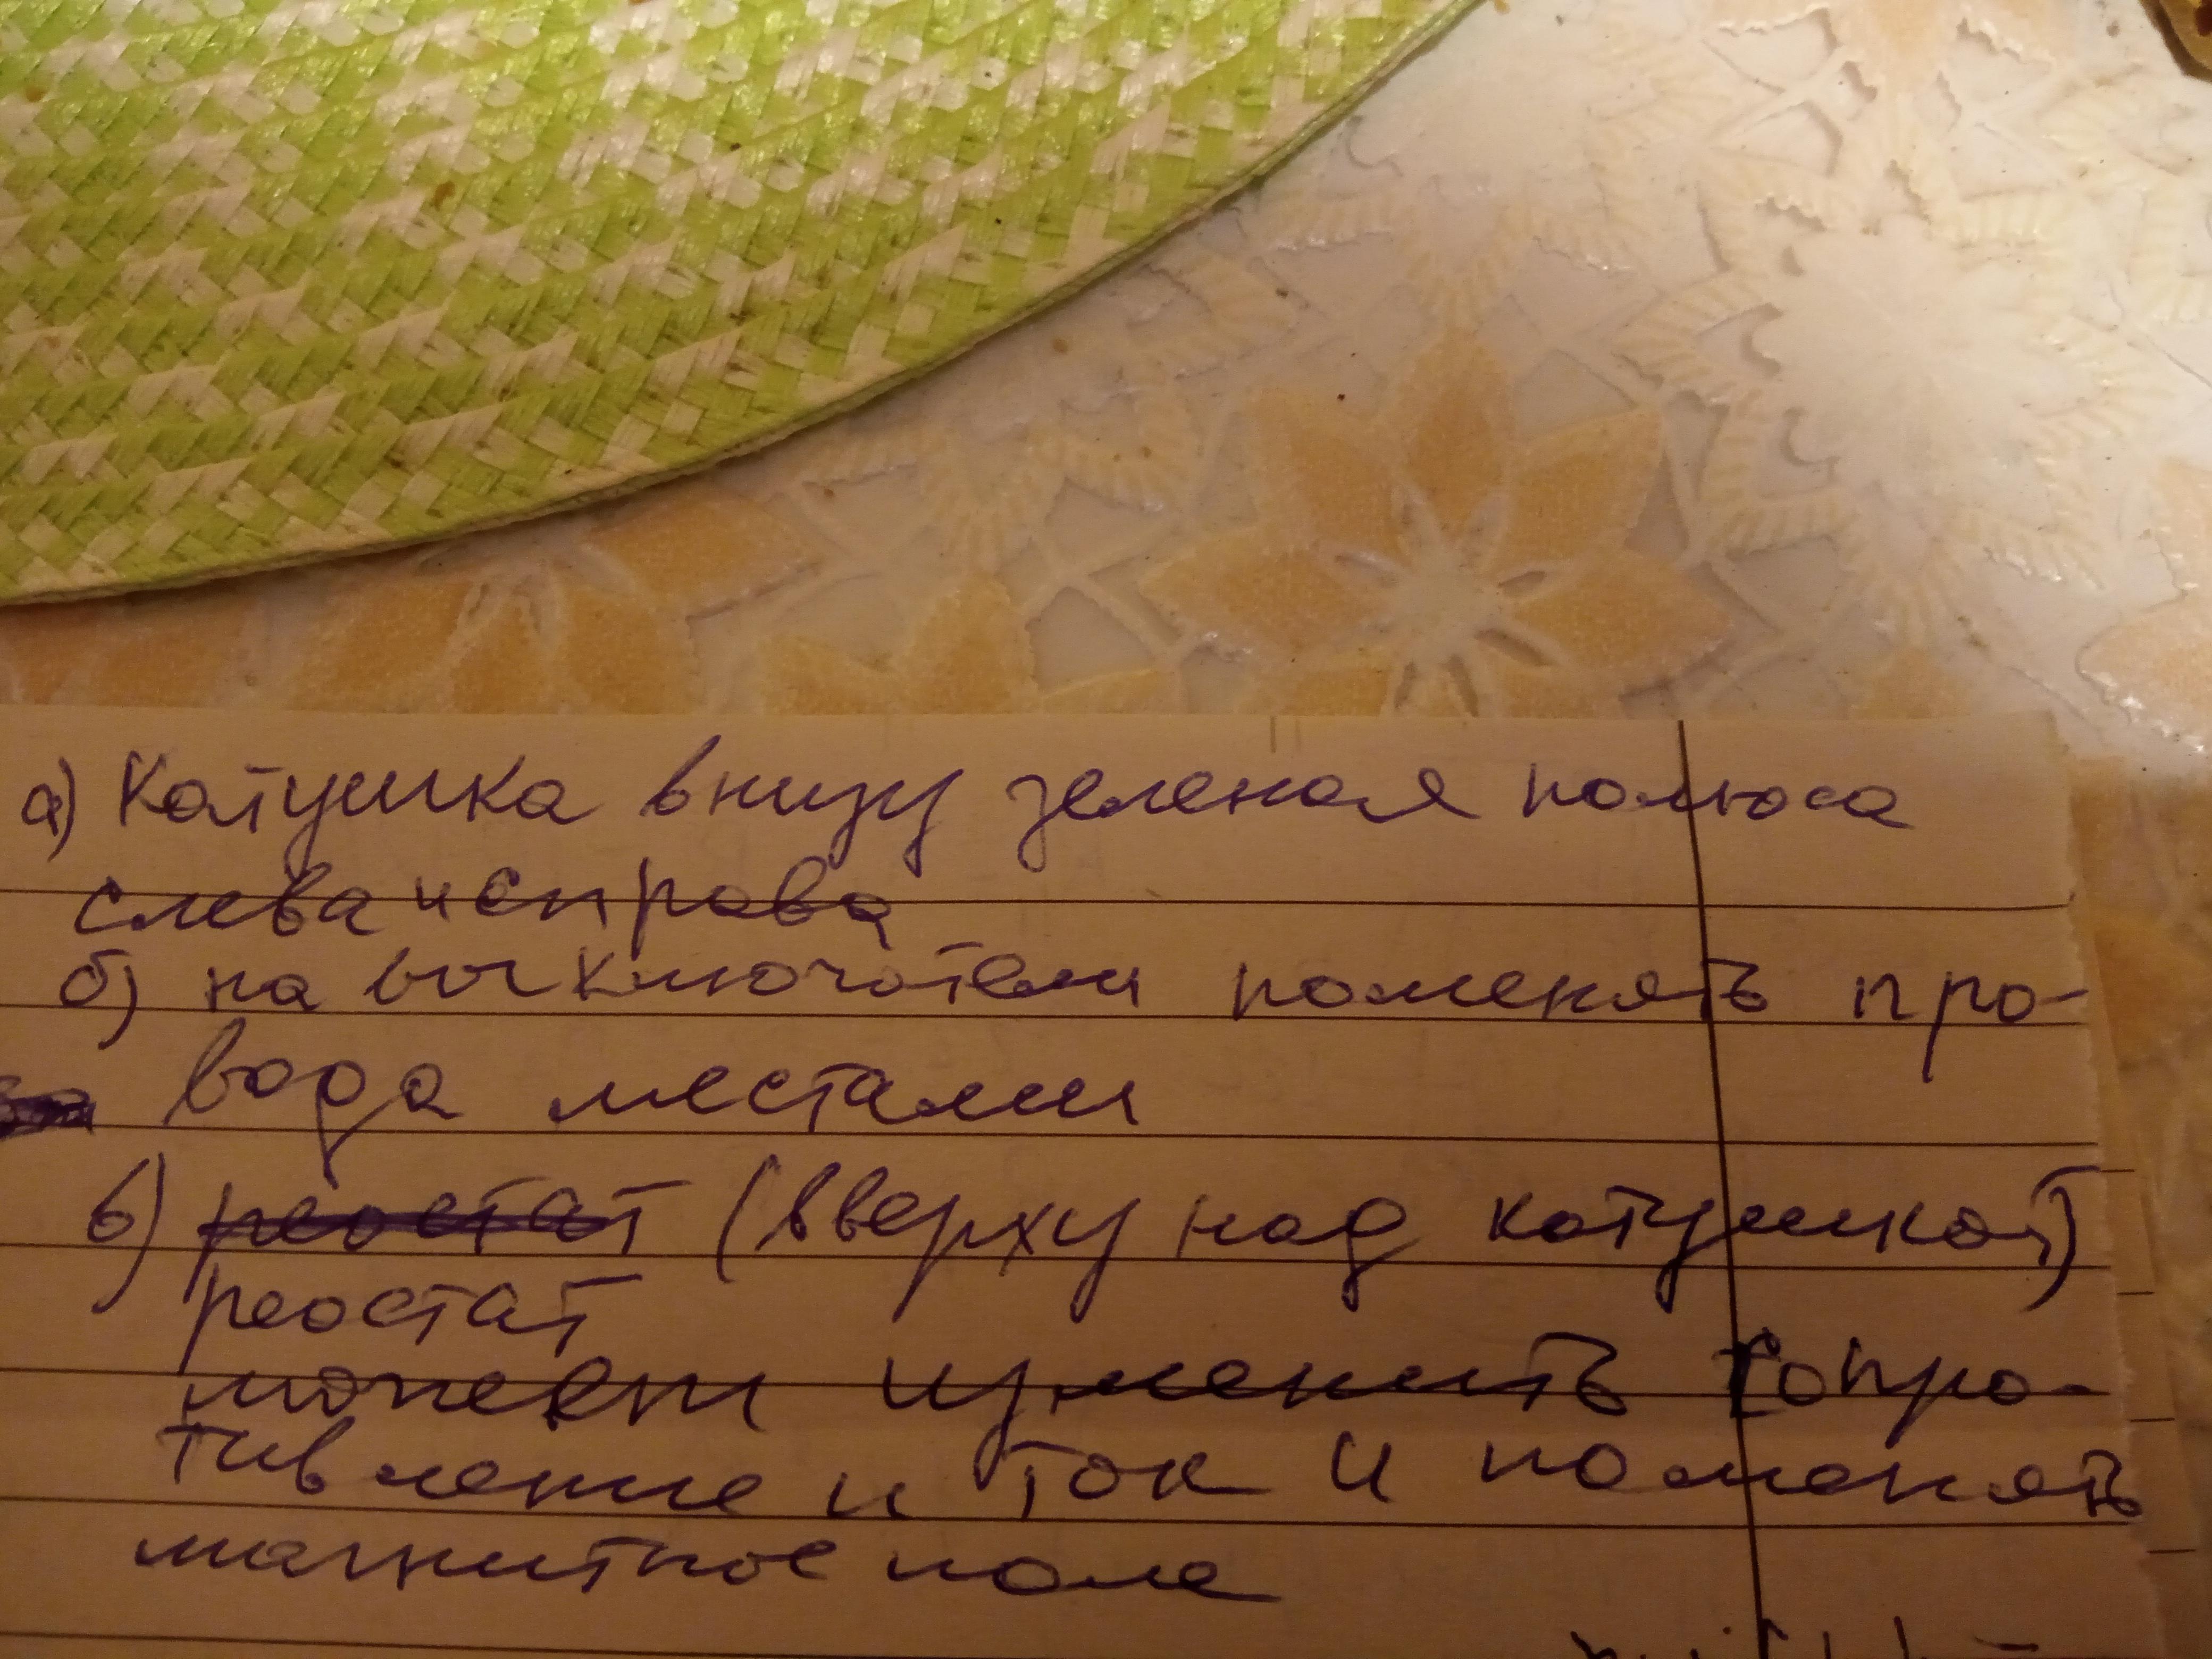 а) Катушка внизу зеленая полюса
слева и справа
б) на выключатели поменять про-
вода местами
в) реостат (вверху над катушкой)
реостат
может изменить сопро-
тивление и ток и поменять
магнитное поле